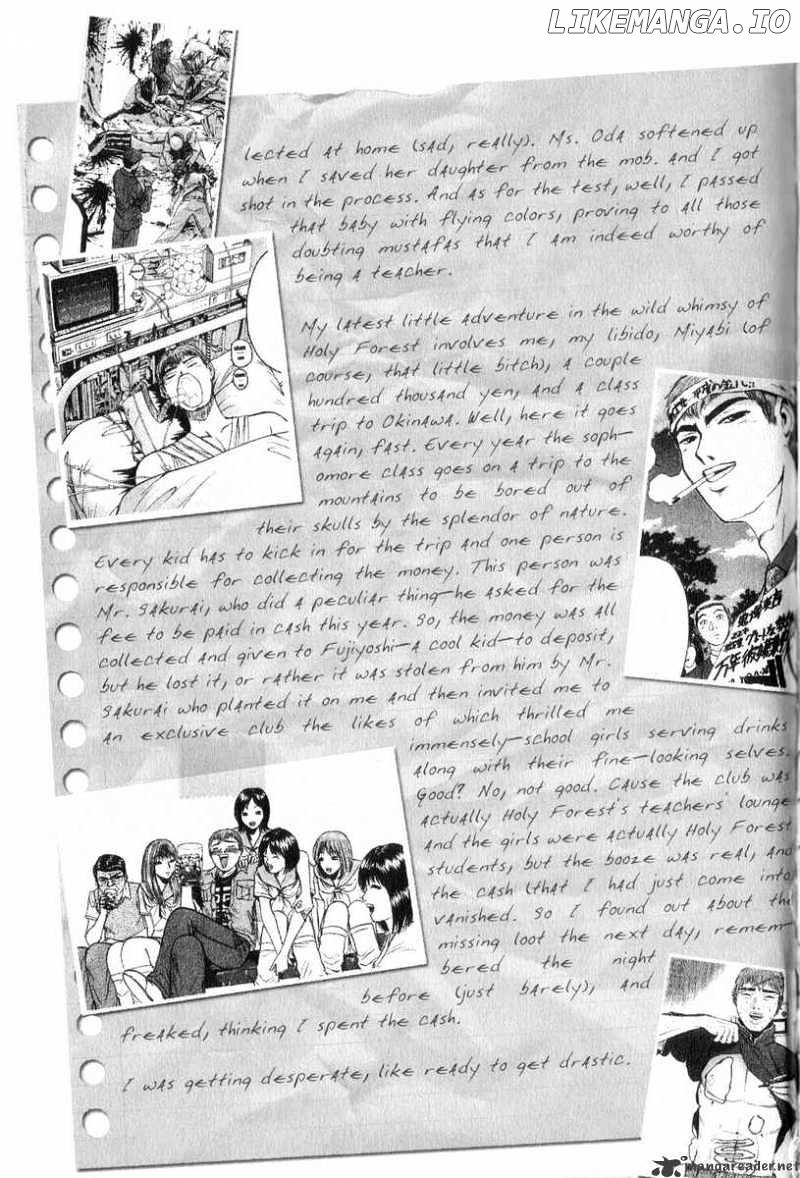 LIKEMANGA.IO
lected at home (sad, really). Ms. Oda softened up
when I saved her daughter from the mob. And I got
shot in the process. And as for the test, well, I passed
that baby with flying colors, proving to all those
doubting mustafas that I am indeed worthy of
being a teacher.
My latest little adventure in the wild whimsy of
Holy Forest involves me, my libido, Miyabi (of
course, that little bitch), a couple
hundred thousand yen, and a class
trip to Okinawa. Well, here it goes
again, fast. Every year the soph-
omore class goes on a trip to the
mountains to be bored out of
their skulls by the splendor of nature.
Every kid has to kick in for the trip and one person is
responsible for collecting the money. This person was
Mr. Sakurai, who did a peculiar thing—he asked for the
fee to be paid in cash this year. So, the money was all
collected and given to Fujiyoshi—a cool kid—to deposit,
but he lost it, or rather it was stolen from him by Mr.
Sakurai who planted it on me and then invited me to
an exclusive club the likes of which thrilled me
immensely—school girls serving drinks
along with their fine-looking selves.
Good? No, not good. Cause the club was
actually Holy Forest's teachers' lounge
and the girls were actually Holy Forest
students, but the booze was real, and
the cash (that I had just come into
vanished. So I found out about the
missing loot the next day, remem-
bered the night
before (just barely), and
freaked, thinking I spent the cash.
I was getting desperate, like ready to get drastic.
mangareader.net